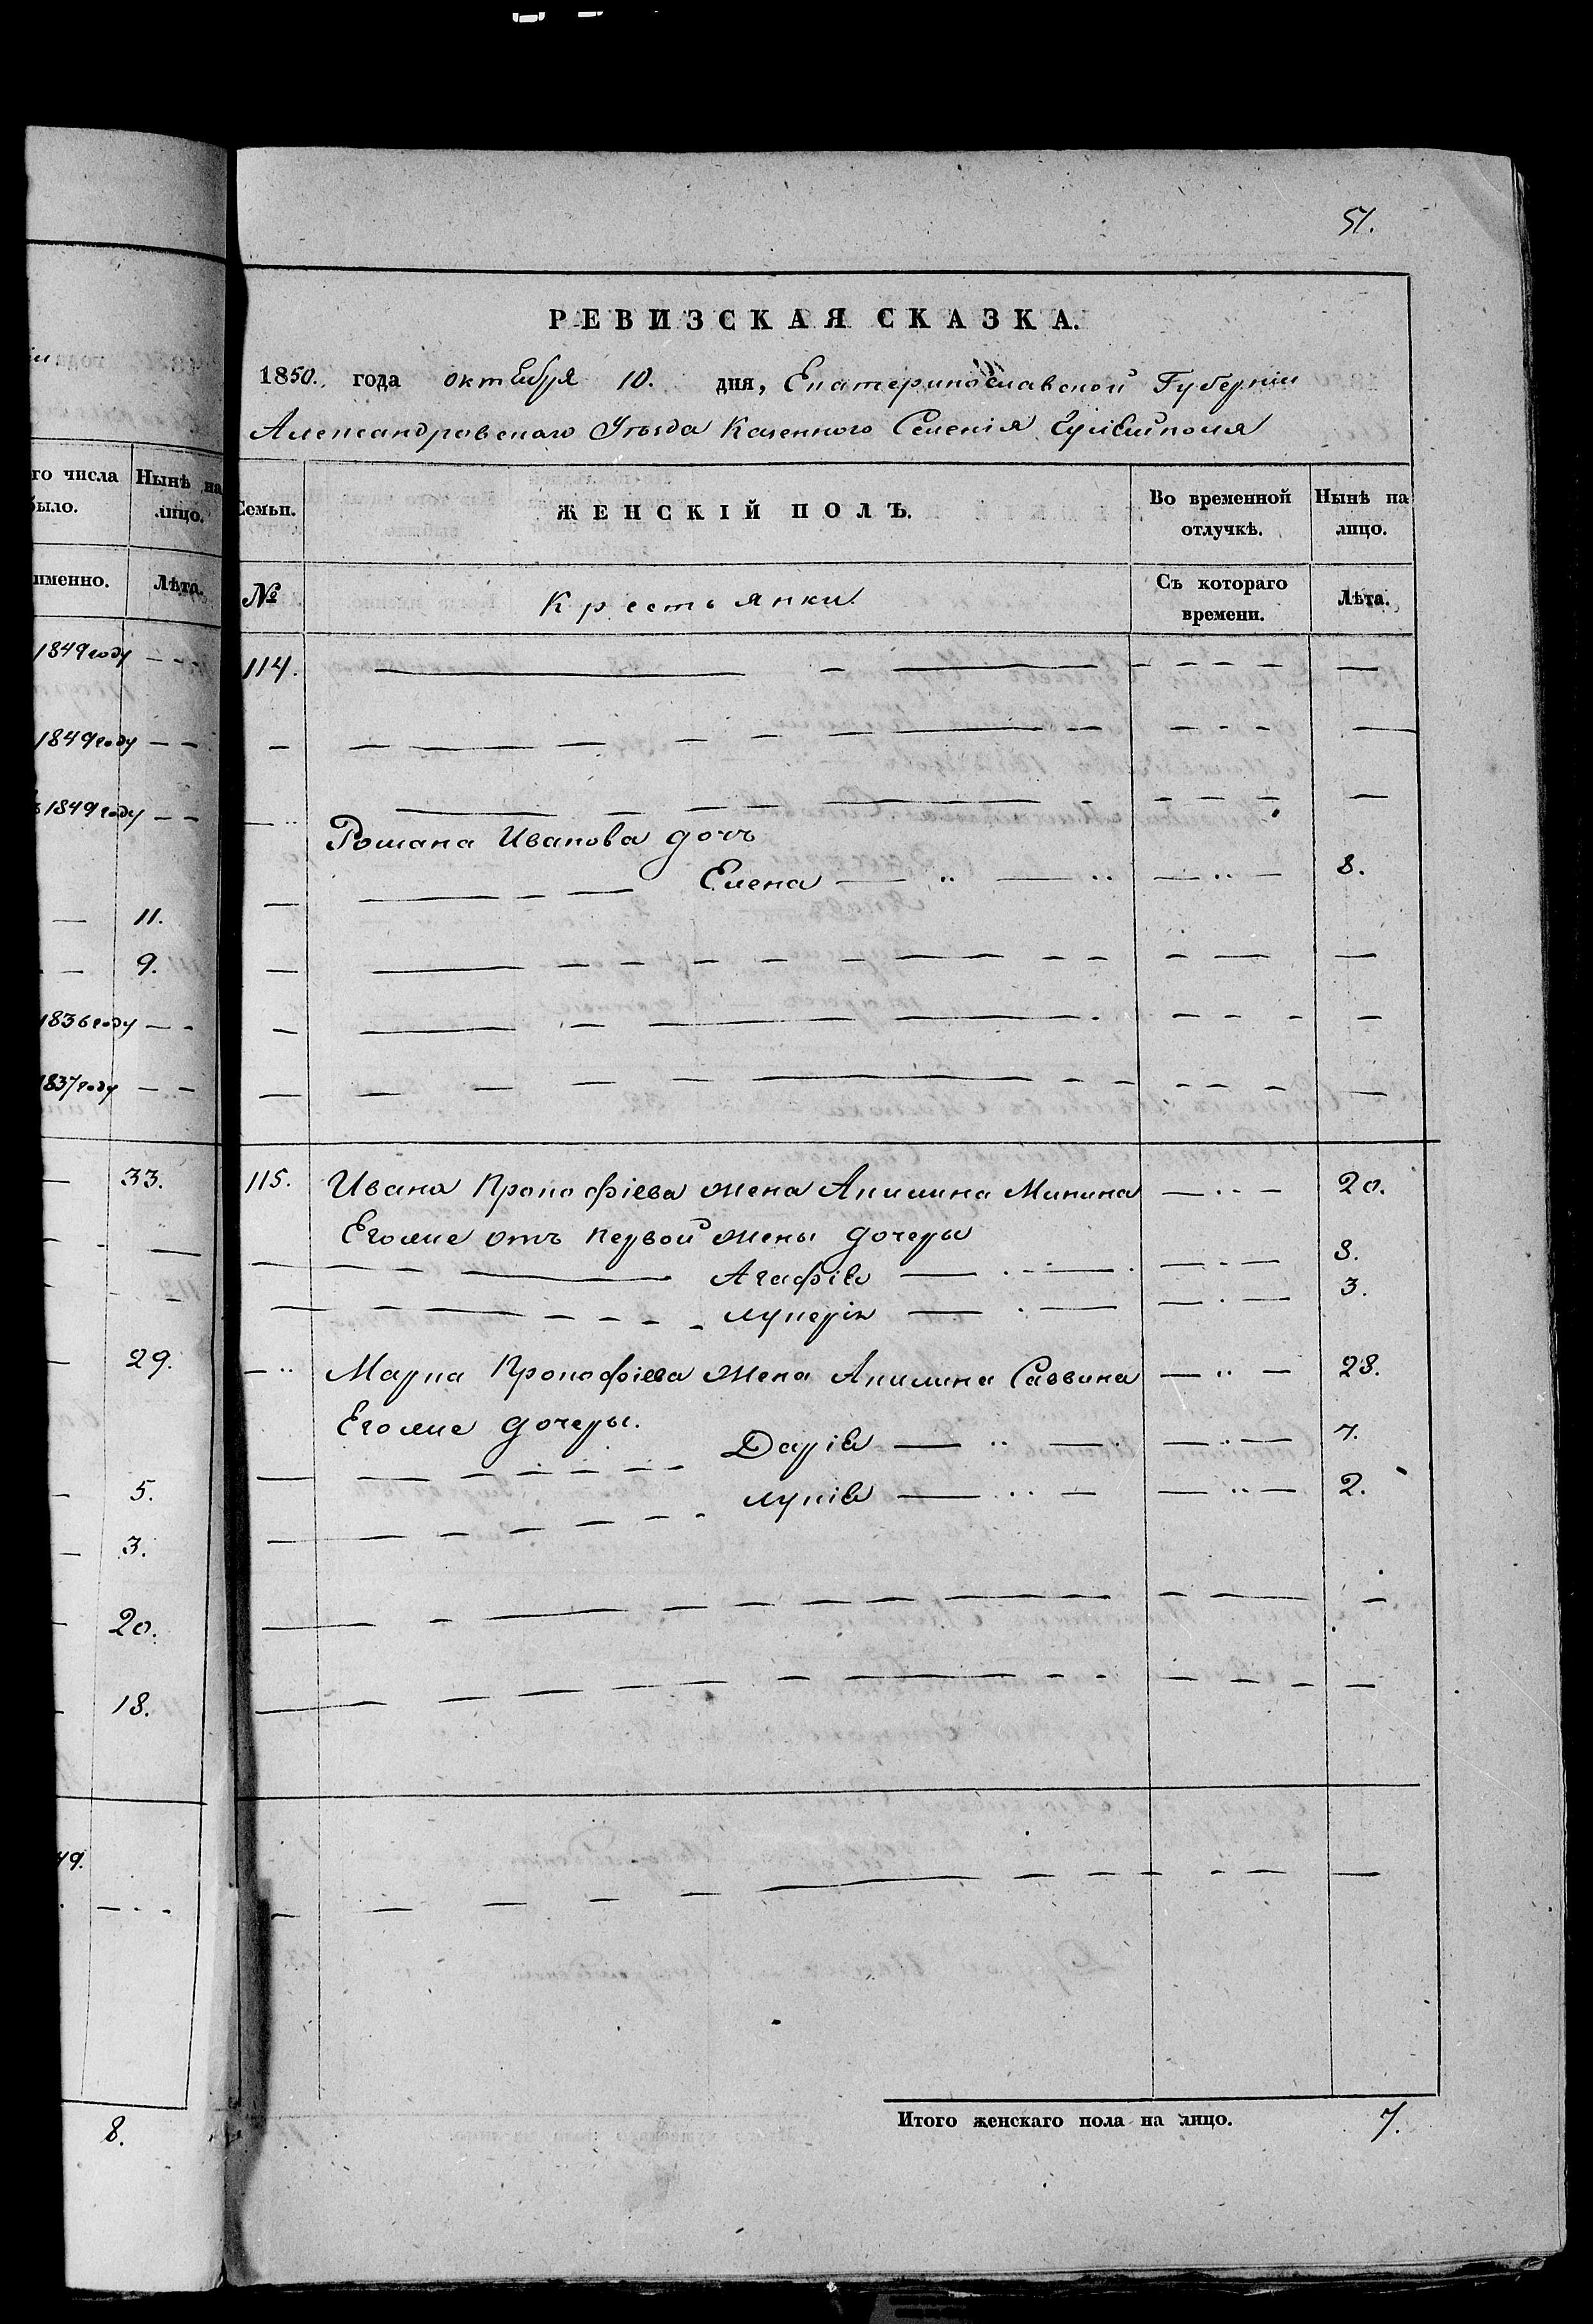 51.
го числа
было.
Нынѣ на
лицо.
именно.
Лѣта.
1849 году
1849 году
1849 году
11.
9.
1836 году
1837 году
33.
29.
5.
3.
20.
18.
49.
8.
РЕВИЗСКАЯ СКАЗКА.
1850. года октября 10. дня, Екатеринославской Губерніи
Александровскаго Уѣзда Казенного Селенія Гуляйполя
Семьи.
ЖЕНСКІЙ ПОЛЪ.
Во временной
отлучкѣ.
Нынѣ на
лицо.
№
Крестьянки.
Съ котораго
времени.
Лѣта.
114.
Романа Иванова дочь
Елена 8.
115. Ивана Прокофіева жена Акилина Минина 20.
Егоже отъ первой жены дочеры
Агафія 8.
лукерія 3.
Марка Прокофіева жена Акилина Саввина 28.
Егоже дочеры.
Дарія 7.
лукія 2.
Итого женскаго пола на лицо. 7.